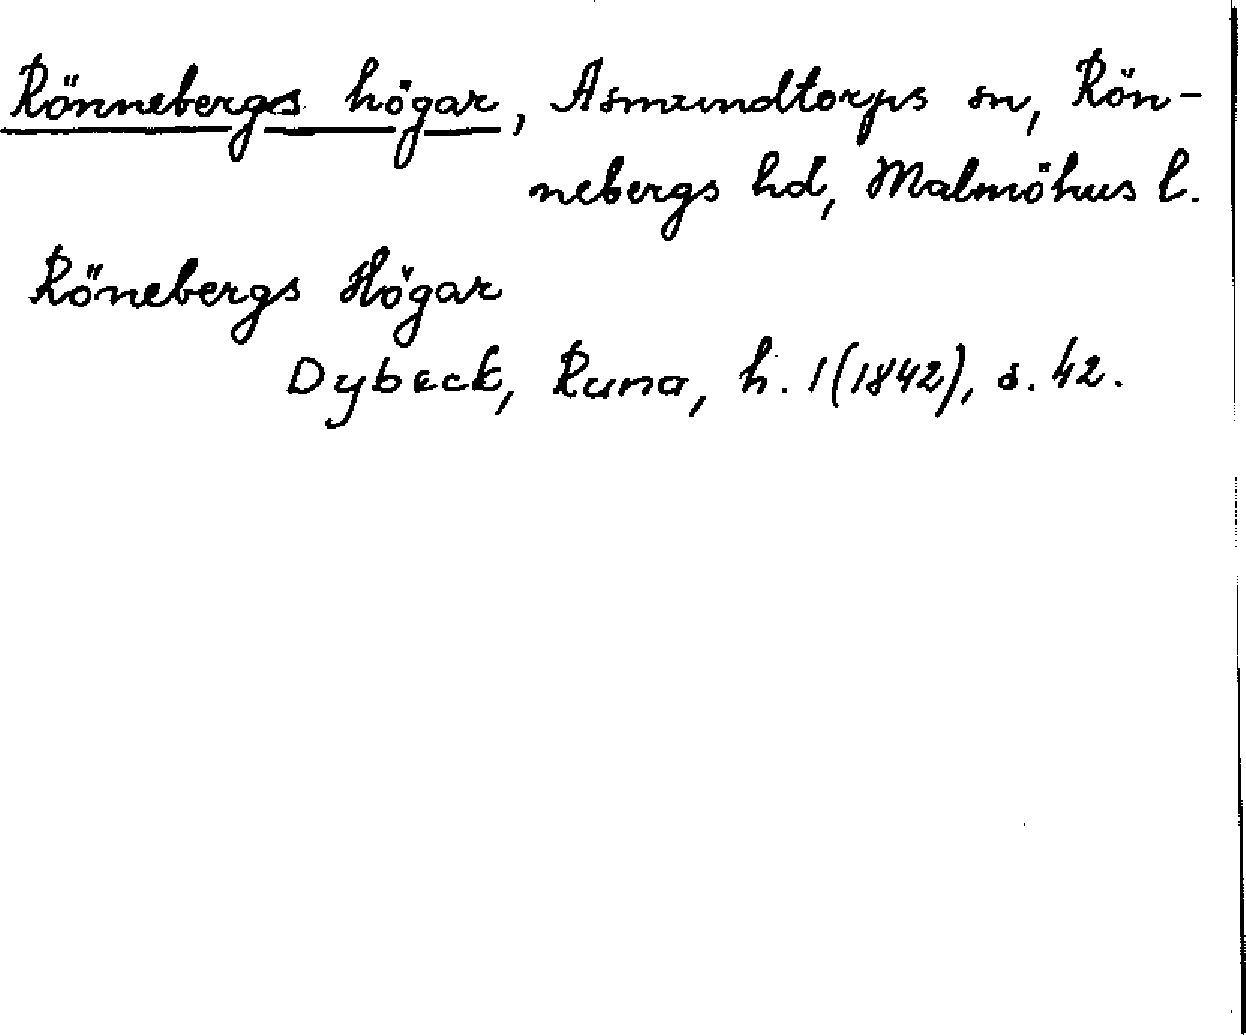 Rönnebergs högar, Asmundtorps sn, Rön-
nebergs hd, Malmöhus l.
Rönebergs Högar
Dybeck, Runa, h. 1(1842), s. 42.